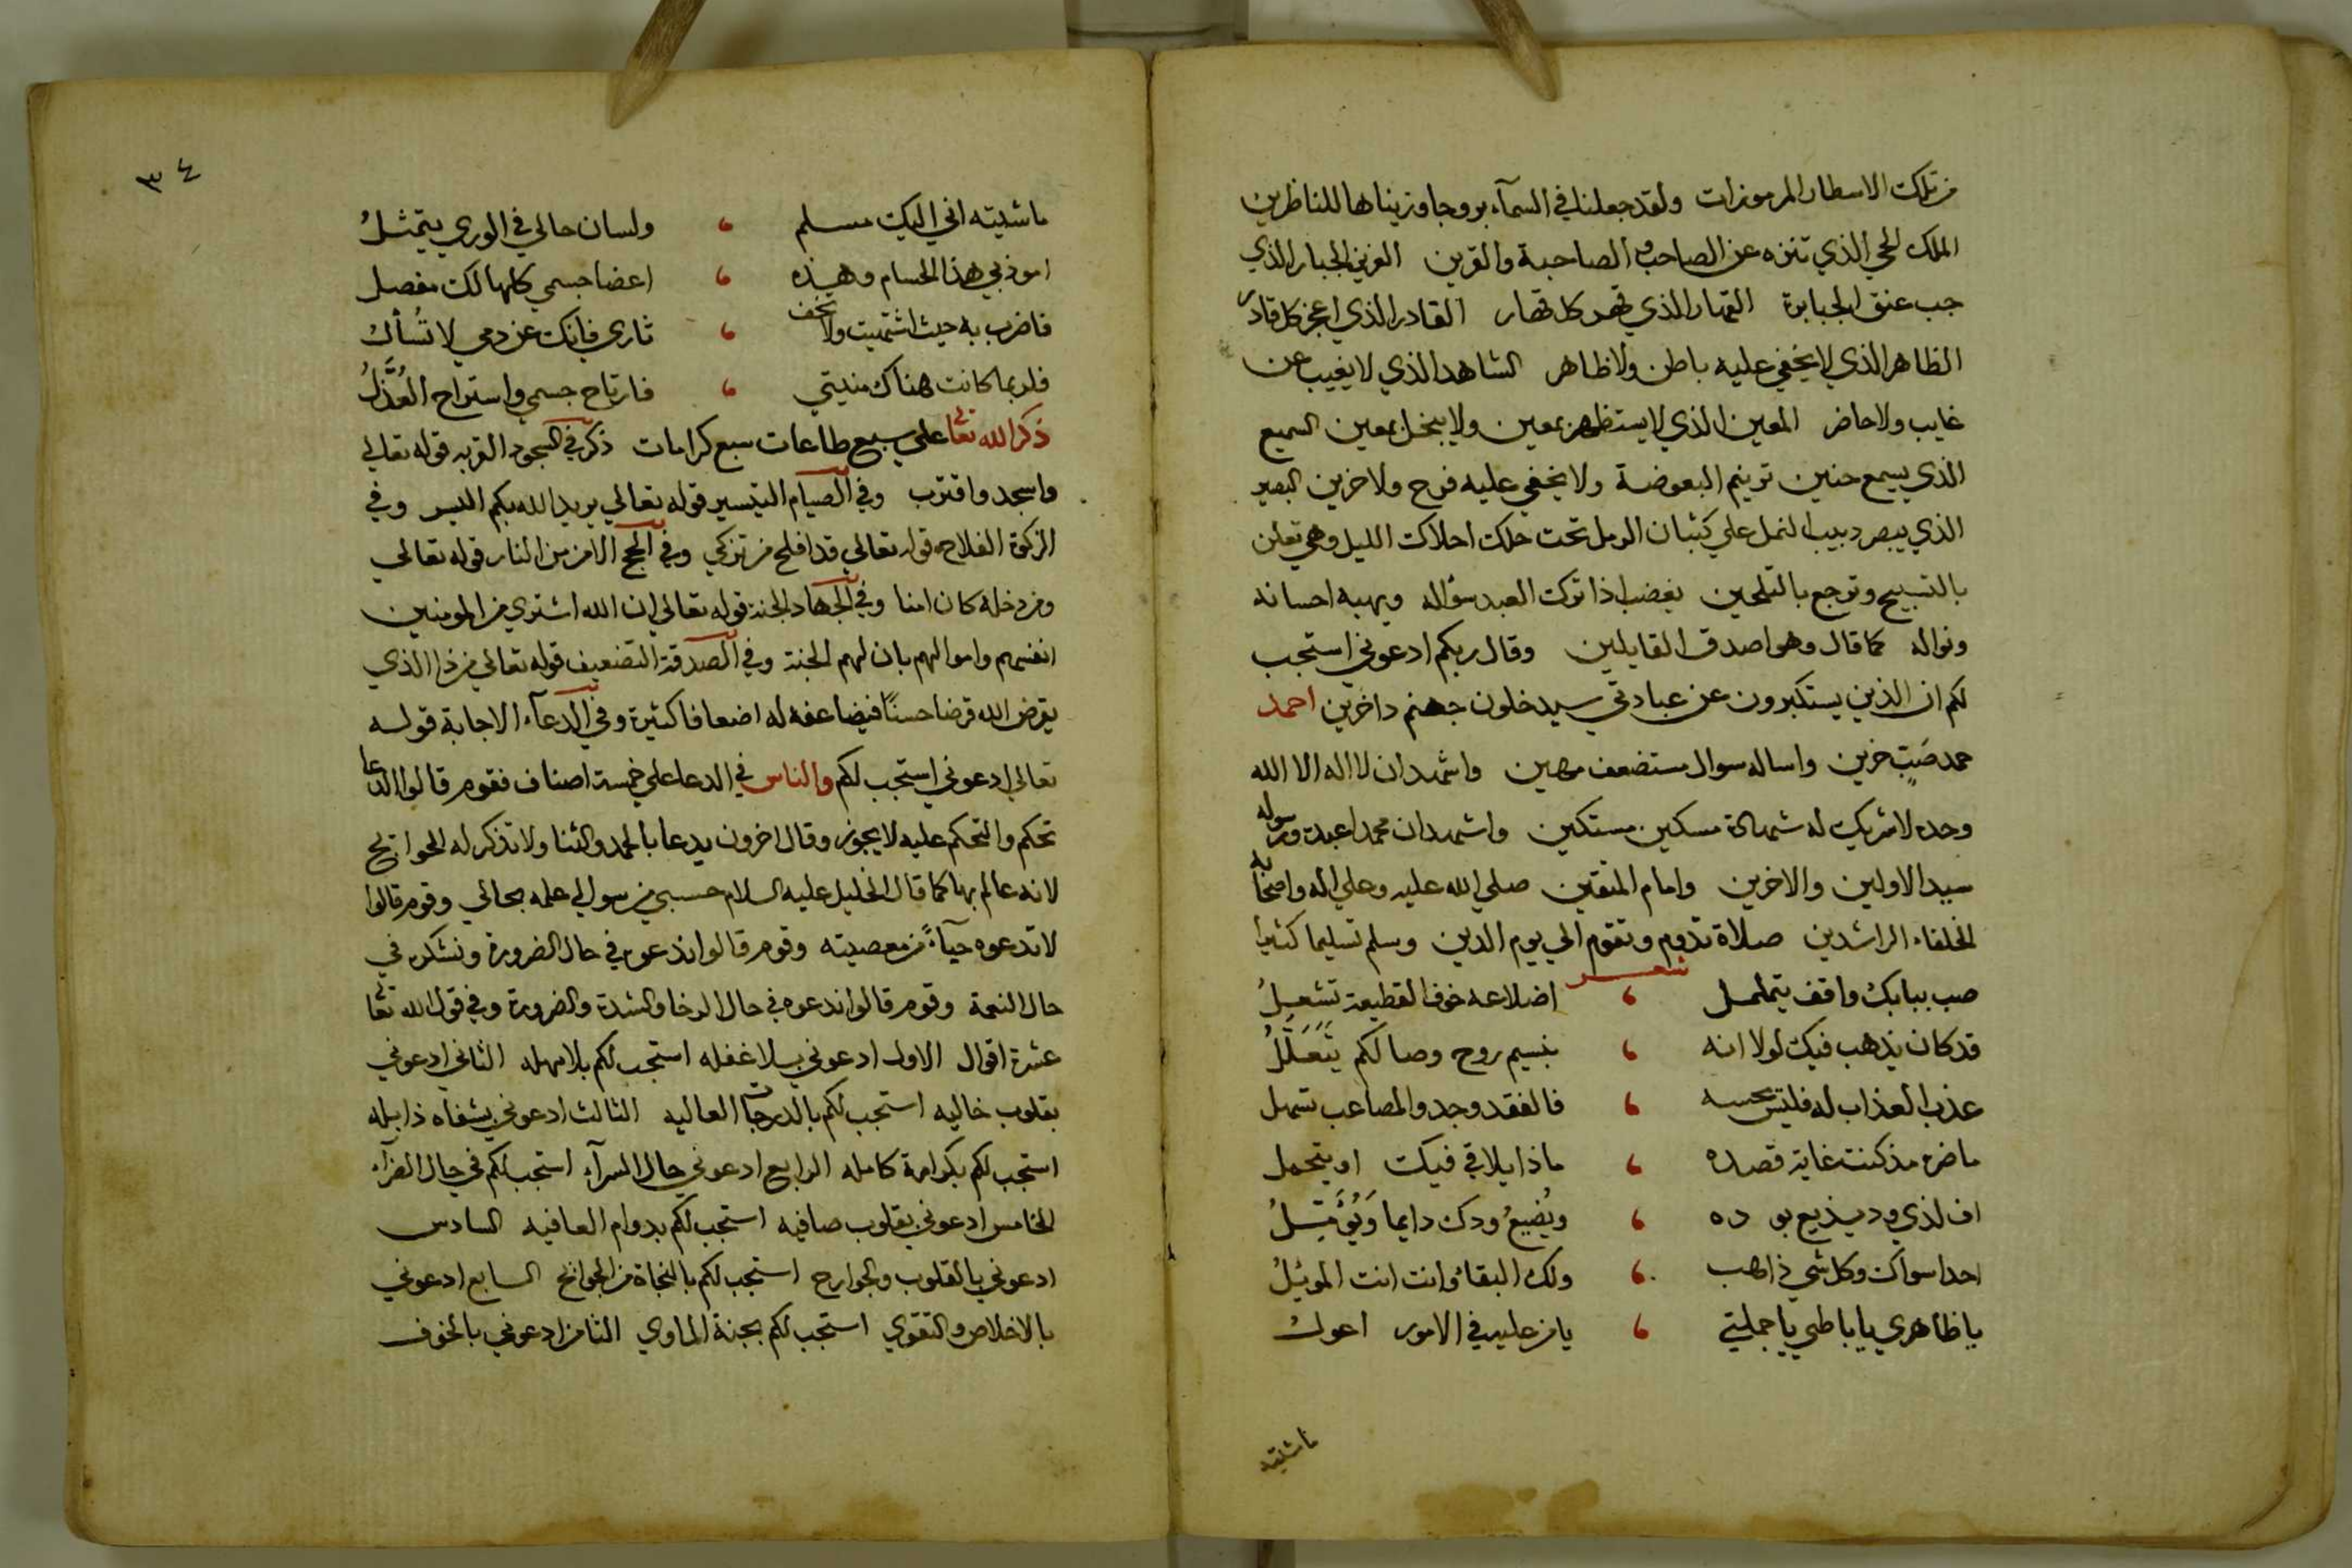 من تلك الاسطار المرموزات ولقد جعلنا في السمآء بروجا وزيناها للناظرين
الملك الحي الذي تنزه عن الصاحب والصاحبة والقرين العزيز الجبار الذي
جب عنق الجبابرة القهار الذي قهر كل قهار القادر الذي اعجز كل قادر
الظاهر الذي لا يخفي عليه باطن ولا ظاهر الشاهد الذي لا يغيب عن
غايب ولا حاضر المعين الذي لا يستظهر بمعين ولا يبخل بمعين السميع
الذي يسمع حنين ترنيم البعوضة ولا يخفي عليه فرح ولا حزين البصير
الذي يبصر دبيب النمل علي كثبان الرمل تحت حلك احلاك الليل وهي تعلن
بالتسبيح وترجع بالتلحين يغضب اذا ترك العبد سؤاله ويهبه احسانه
ونواله كما قال وهو اصدق القايلين وقال ربكم ادعوني استجب
لكم ان الذين يستكبرون عن عبادتي سيدخلون جهنم داخرين احمده
حمد صَبٍّ حزين واساله سوال مستضعف مهين واشهد ان لا اله الا الله
وحده لا شريك له شهادة مسكين مستكين واشهد ان محمدا عبده ورسوله
سيد الاولين والاخرين وامام المتقين صلي الله عليه وعلي اله واصحابه
الخلفاء الراشدين صلاة تدوم وتقوم الي يوم الدين وسلم تسليما كثيرا
شعر
صب ببابك واقف يتململ ، اضلاعه خوف القطيعة تشعلُ
قد كان يذهب فيك لولا انه ، بنسيم روح وصالكم يَتَعَلَّلُ
عذب العذاب له فليس يحسه ، فالفقد وجد والمصاعب تسهل
ما ضره مذ كنت غاية قصده ، ماذا يلاقي فيك او يتحمل
اف لذي ود يذيع بوده ، ويُضيعُ ودك دايما وَيُؤَمِّلُ
احدا سواك وكل شي ذاهب ، ولك البقاء وانت انت الموئلُ
يا ظاهري يا باطني يا جملتي ، يا من عليه في الامور اعول
ما شئته
٣٤
ما شئته اني اليك مسلم ، ولسان حالي في الوري يتمثلُ
امعذبي هذا الحسام وهذه ، اعضا جسمي كلها لك مفصل
فاضرب به حيث اشتهيت ولا تخف ، ثاري فإنك عن دمي لا تُسأل
فلربما كانت هناك منيتي ، فارتاح جسمي واستراح العُذَّلُ
ذكر الله تعالى علي سبع طاعات سبع كرامات ذكر في السجود القربه قوله تعالي
واسجد واقترب وفي الصيام التيسير قوله تعالي يريد الله بكم اليسر وفي
الزكوة الفلاح قوله تعالي قد افلح من تزكي وفي الحج الامن من النار قوله تعالي
ومن دخله كان امنا وفي الجهاد الجنة قوله تعالي ان الله اشتري من المومنين
انفسهم واموالهم بان لهم الجنة وفي الصدقة التضعيف قوله تعالي من ذا الذي
يقرض الله قرضا حسنًا فيضاعفه له اضعافا كثيرة وفي الدعآء الاجابة قوله
تعالي ادعوني استجب لكم والناس في الدعا علي خمسة اصناف فقوم قالوا الدعا
تحكم والتحكم عليه لا يجوز وقال اخرون يدعا بالحمد والثنا ولا تذكر له الحوايج
لانه عالم بها كما قال الخليل عليه السلام حسبي من سوالي علمه بحالي وقوم قالوا
لا تدعوه حيآءً من معصيته وقوم قالوا ندعوه في حال الضرورة ونشكره في
حال النعمة وقوم قالوا ندعوه في حال الرخا والشدة والضرورة وفي قول الله تعالى
عشرة اقوال الاول ادعوني بلا غفله استجب لكم بلا مهله الثاني ادعوني
بقلوب خاليه استجب لكم بالدرجات العاليه الثالث ادعوني بشفاه ذابله
استجب لكم بكرامة كامله الرابع ادعوني حال السرآء استجب لكم في حال الضرآء
الخامس ادعوني بقلوب صافيه استجب لكم بدوام العافيه السادس
ادعوني بالقلوب والجوارح استجب لكم بالنجاة من الجوانح السابع ادعوني
بالاخلاص والتقوي استجب لكم بجنة الماوي الثامن ادعوني بالخوف